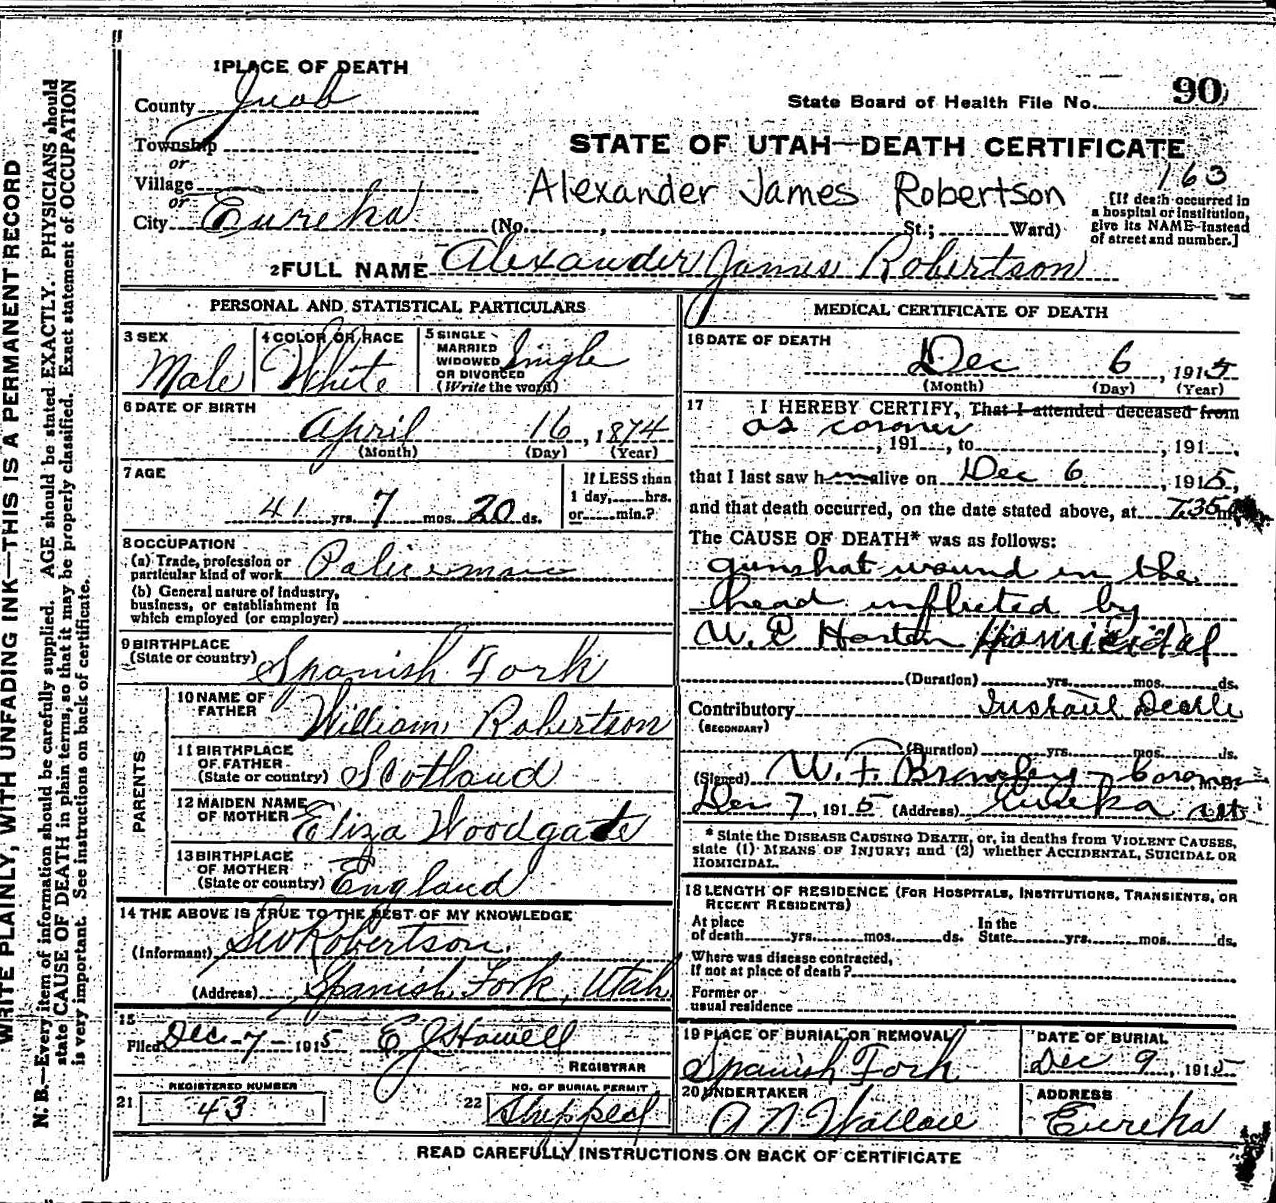 WRITE PLAINLY, WITH UNFADING INK—THIS IS A PERMANENT RECORD
N. B.—Every item of information should be carefully supplied. AGE should be stated EXACTLY. PHYSICIANS should
state CAUSE OF DEATH in plain terms, so that it may be properly classified. Exact statement of OCCUPATION
is very important. See instructions on back of certificate.
1 PLACE OF DEATH
County Juab
State Board of Health File No. 90
Township
or
STATE OF UTAH—DEATH CERTIFICATE
163
Village
or
Alexander James Robertson
City Eureka (No. , St.; Ward)
[If death occurred in
a hospital or institution,
give its NAME instead
of street and number.]
2 FULL NAME Alexander James Robertson
PERSONAL AND STATISTICAL PARTICULARS
3 SEX
Male
4 COLOR OR RACE
White
5 SINGLE
MARRIED
WIDOWED
OR DIVORCED
(Write the word)
Single
6 DATE OF BIRTH
April 16, 1874
(Month) (Day) (Year)
7 AGE
41 yrs. 7 mos. 20 ds.
If LESS than
1 day, hrs.
or min.?
8 OCCUPATION
(a) Trade, profession or
particular kind of work Policeman
(b) General nature of industry,
business, or establishment in
which employed (or employer)
9 BIRTHPLACE
(State or country) Spanish Fork
PARENTS
10 NAME OF
FATHER William Robertson
11 BIRTHPLACE
OF FATHER
(State or country) Scotland
12 MAIDEN NAME
OF MOTHER Eliza Woodgate
13 BIRTHPLACE
OF MOTHER
(State or country) England
14 THE ABOVE IS TRUE TO THE BEST OF MY KNOWLEDGE
(Informant) S W Robertson
(Address) Spanish Fork, Utah
15
Filed Dec - 7 - 1915 E J Howell
REGISTRAR
21 REGISTERED NUMBER
43
22 NO. OF BURIAL PERMIT
Shipped
MEDICAL CERTIFICATE OF DEATH
16 DATE OF DEATH
Dec 6, 1915
(Month) (Day) (Year)
17 I HEREBY CERTIFY, That I attended deceased from
as coroner
, 191 , to , 191
that I last saw h alive on Dec 6, 1915,
and that death occurred, on the date stated above, at 7.35 m
The CAUSE OF DEATH* was as follows:
gunshot wound in the
head inflicted by
W. E Horton Homicidal
(Duration) yrs. mos. ds.
Contributory Instant Death
(SECONDARY)
(Duration) yrs. mos. ds.
(Signed) W. F. Coroner M. D.
Dec 7, 1915 (Address) Eureka Ut
* State the DISEASE CAUSING DEATH, or, in deaths from VIOLENT CAUSES,
state (1) MEANS OF INJURY; and (2) whether ACCIDENTAL, SUICIDAL OR
HOMICIDAL.
18 LENGTH OF RESIDENCE (FOR HOSPITALS, INSTITUTIONS, TRANSIENTS, OR
RECENT RESIDENTS)
At place
of death yrs. mos. ds.
In the
State yrs. mos. ds.
Where was disease contracted,
if not at place of death?
Former or
usual residence
19 PLACE OF BURIAL OR REMOVAL
Spanish Fork
DATE OF BURIAL
Dec 9, 1915
20 UNDERTAKER
A N Wallace
ADDRESS
Eureka
READ CAREFULLY INSTRUCTIONS ON BACK OF CERTIFICATE